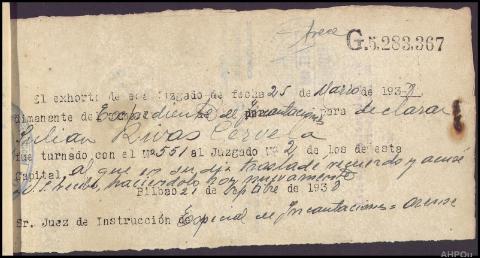 Orense
G.5.283.367
El exhorto de ese Juzgado de fecha 25 de Marzo de 1938
dimanante de Expediente de Incautacion para declarar
Julian Rivas Cervela
fue turnado con el Nº 551 al Juzgado Nº 2 de los de esta
Capital al que en su dia traslade recuerdo y acuse
de recibo, haciendolo hoy nuevamente
Bilbao 21 de Septbre de 1938
Sr. Juez de Instrucción de Especial de Incautaciones = Orense
AHPOu